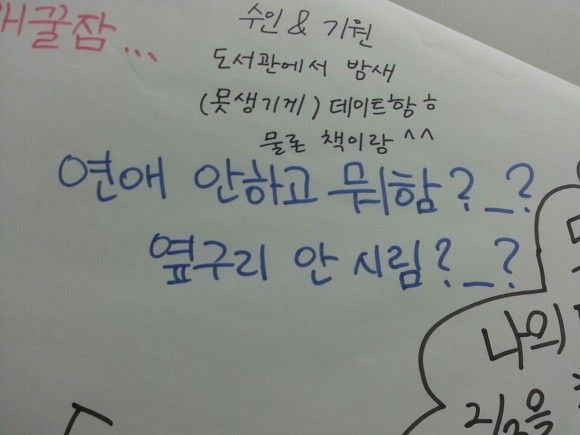 꿀잠...
수인 & 기원
도서관에서 밤새
(못생기게) 데이트함ㅎ
물론 책이랑 ^^
연애 안하고 뭐함?_?
옆구리 안 시림?_?
나의